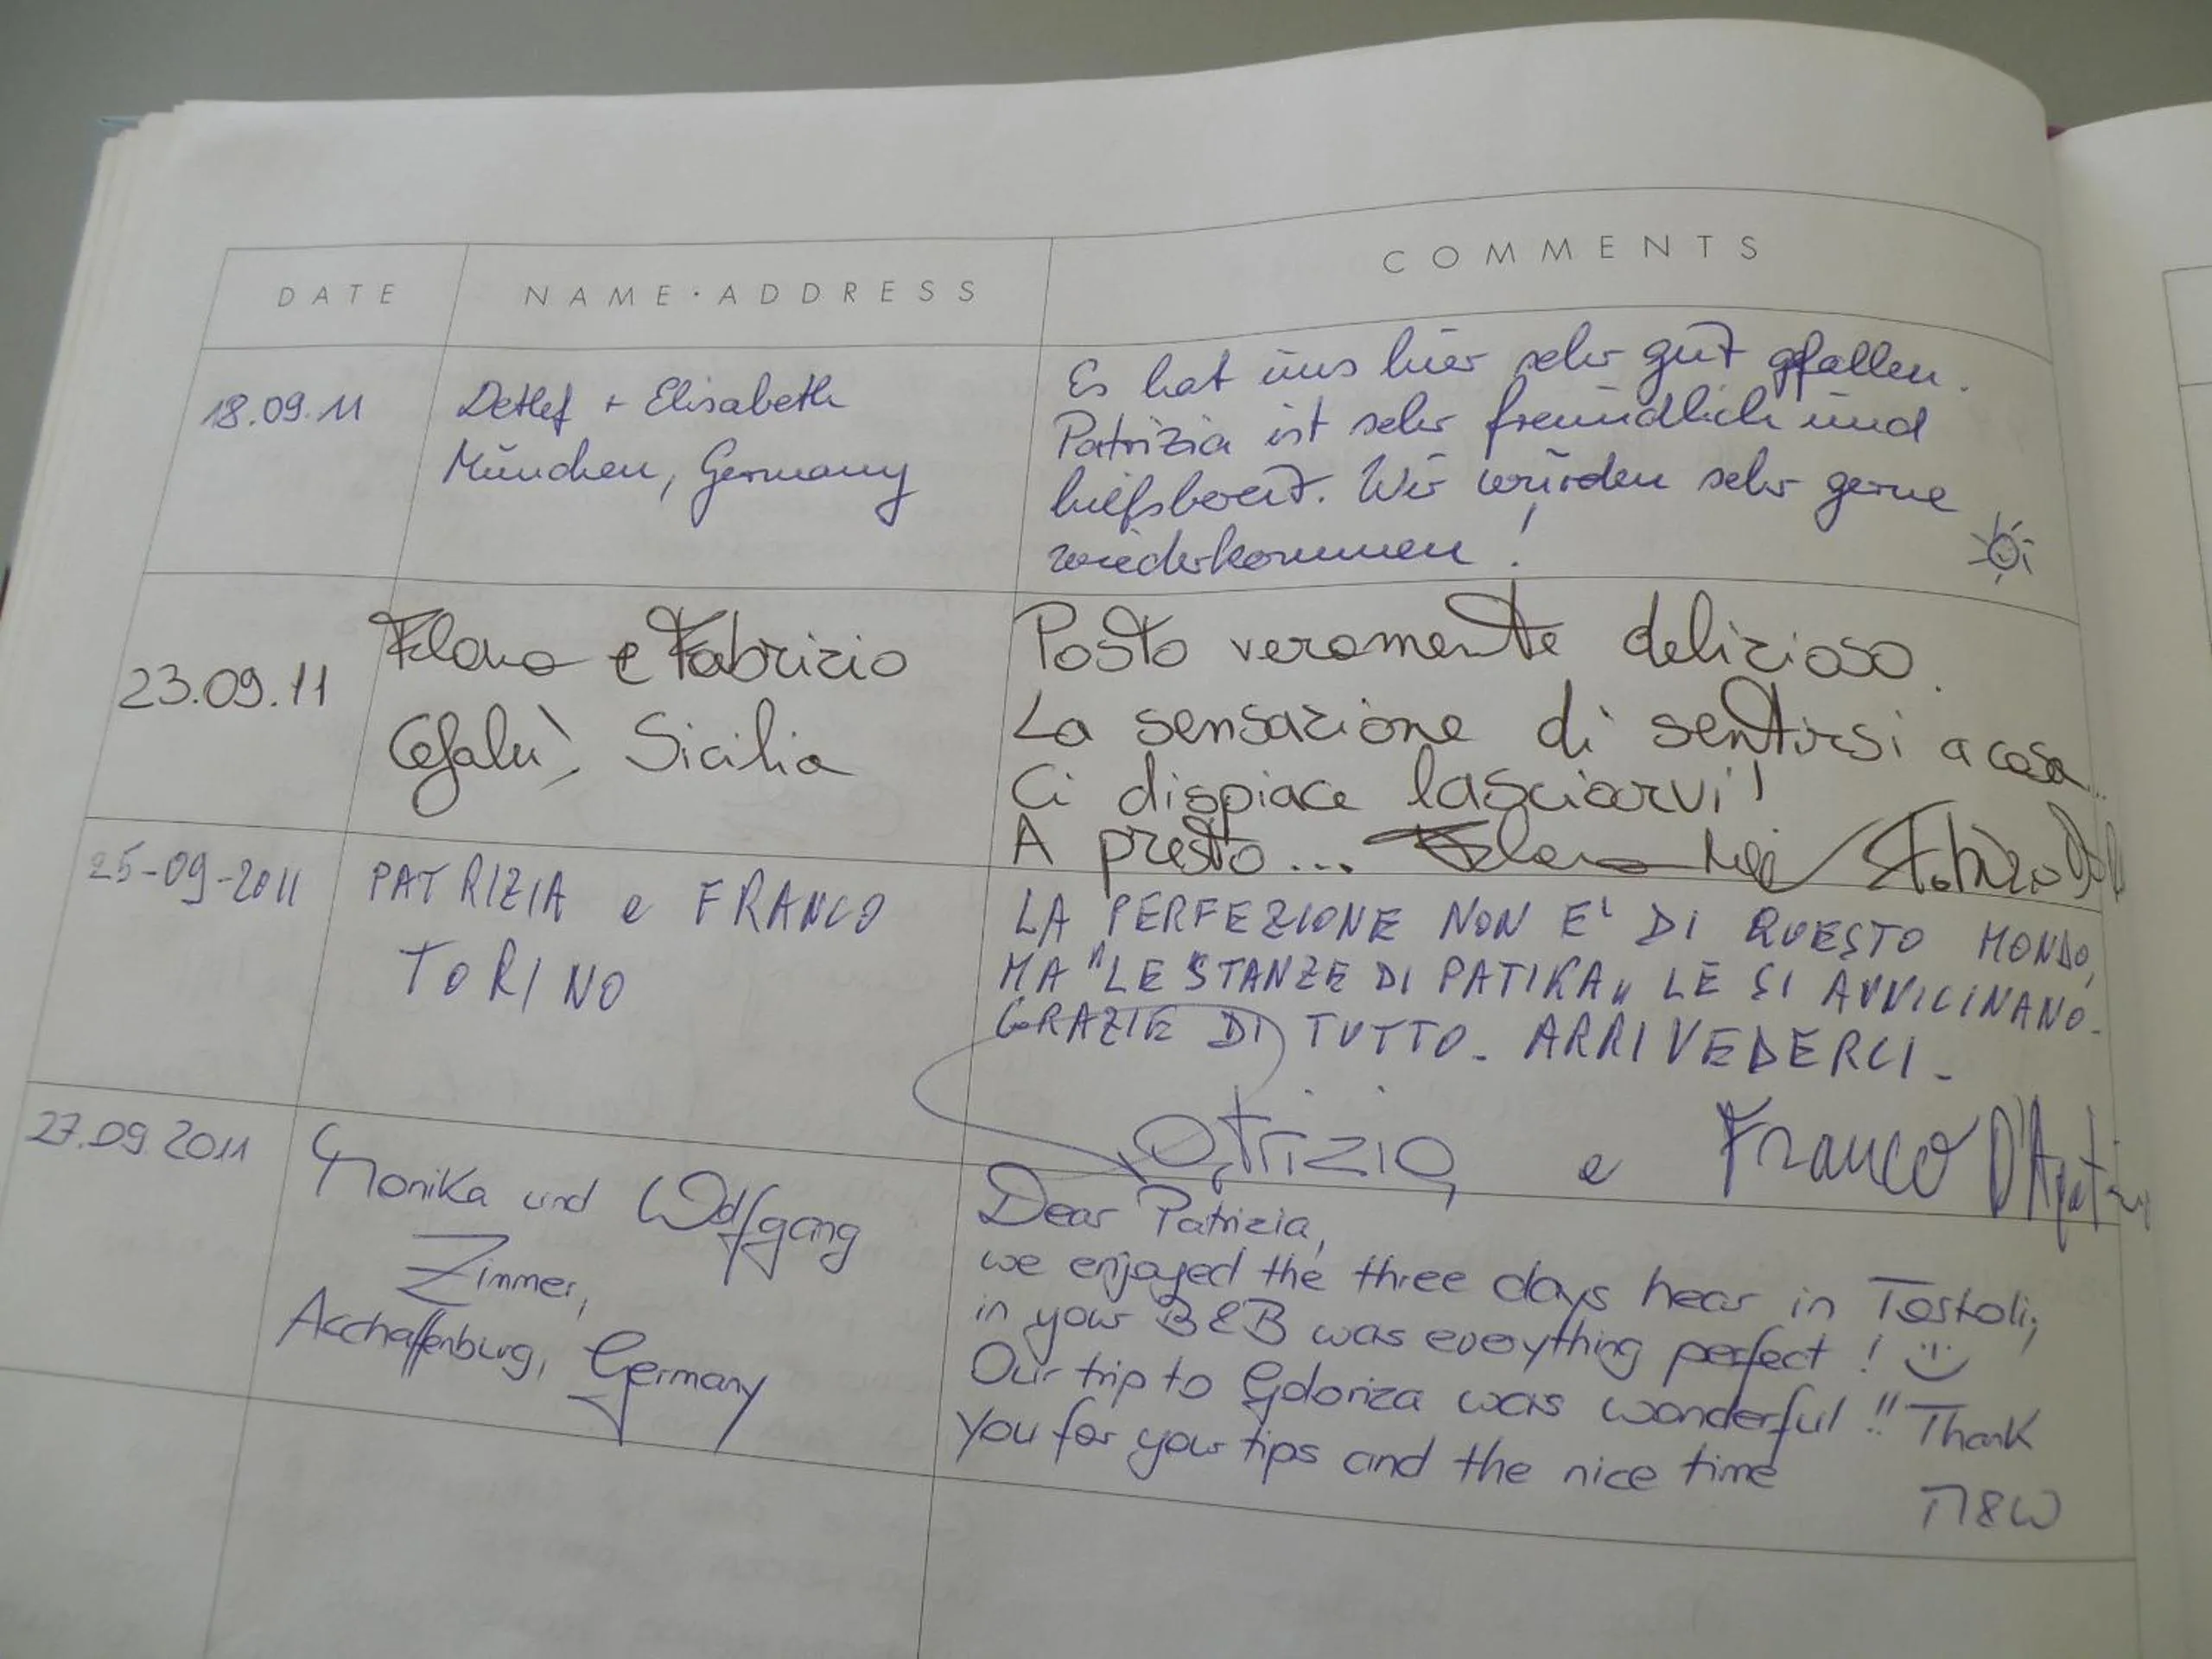 DATE NAME·ADDRESS COMMENTS
18.09.11
Detlef + Elisabeth
München, Germany
Es hat uns hier sehr gut gefallen.
Patrizia ist sehr freundlich und
hilfsbereit. Wir würden sehr gerne
wiederkommen!
23.09.11
e Fabrizio
Cefalù, Sicilia
Posto veramente delizioso.
La sensazione di sentirsi a casa...
Ci dispiace lasciarvi!
A presto...
25-09-2011
PATRIZIA e FRANCO
TORINO
LA PERFEZIONE NON E' DI QUESTO MONDO,
MA "LE STANZE DI PATIKA" LE SI AVVICINANO.
GRAZIE DI TUTTO. ARRIVEDERCI.
Patrizia e Franco
27.09.2011
Monika und Wolfgang
Zimmer,
Aschaffenburg, Germany
Dear Patrizia,
we enjoyed the three days hear in
in your B&B was everything perfect!
Our trip to was wonderful!! Thank
you for your tips and the nice time
M&W